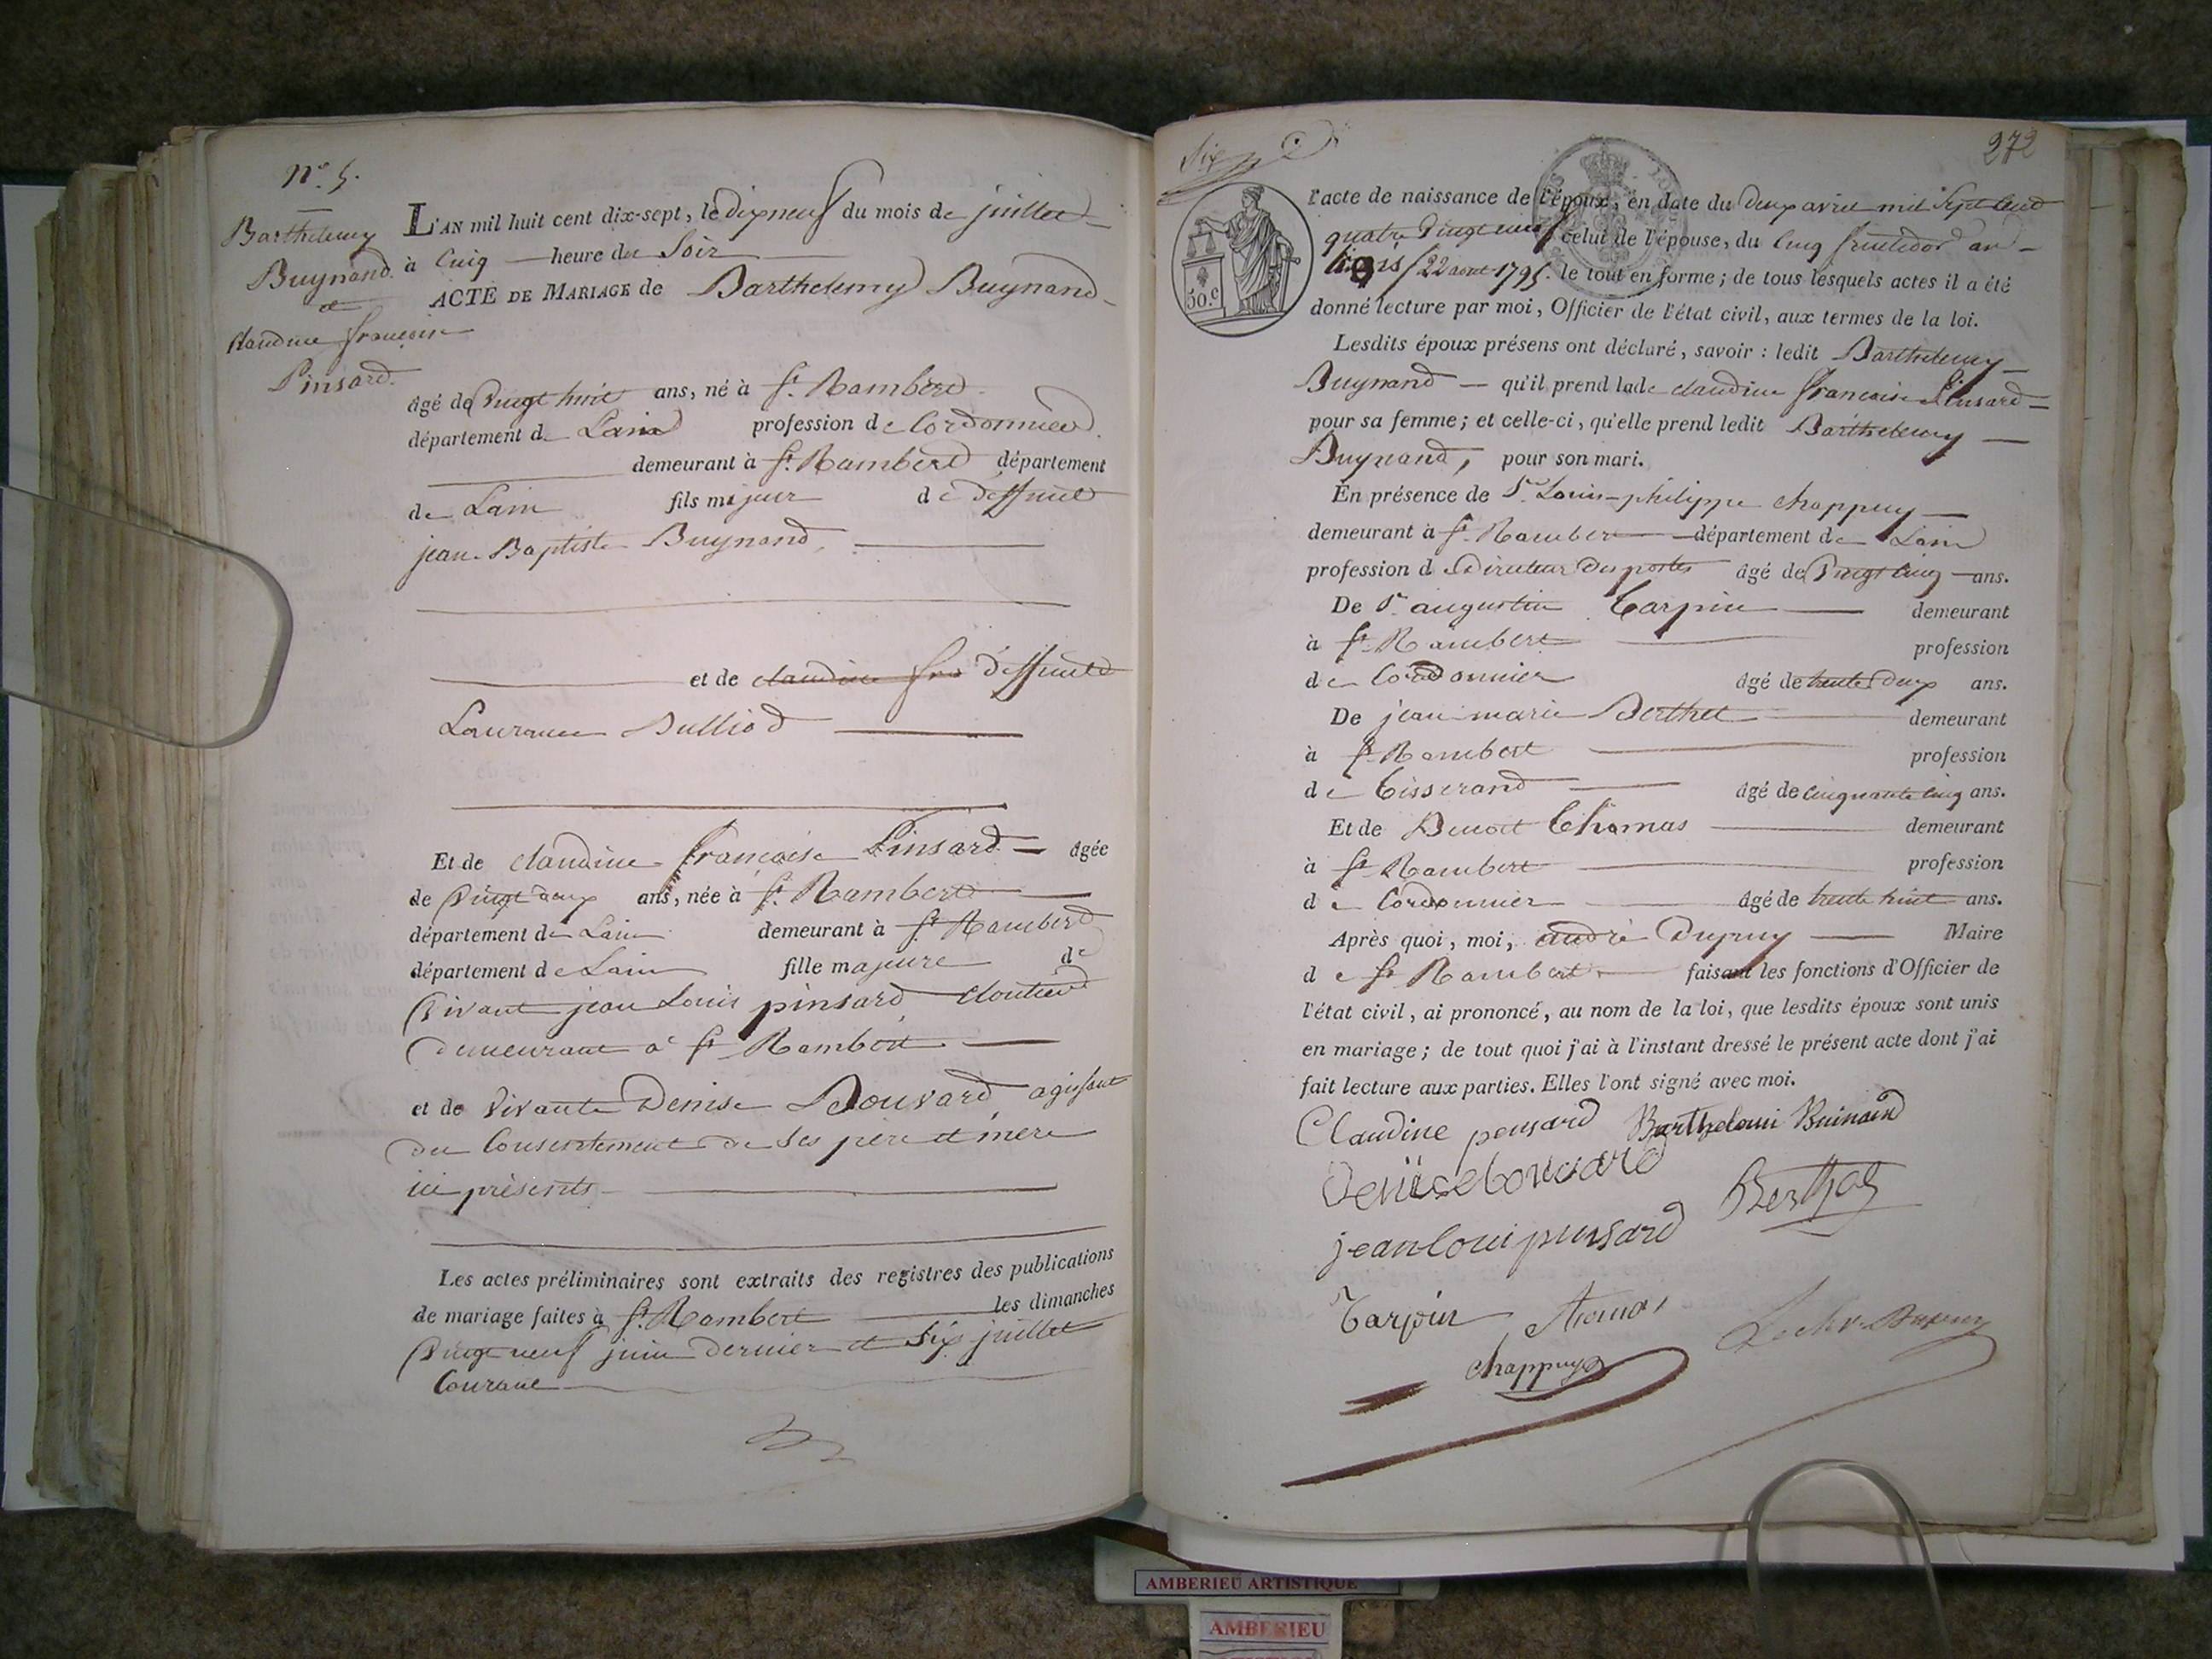 N.º 5.
Barthelemy
Buynand.
et
Claudine françoise
Pinsard.
L'AN mil huit cent dix-sept, le dixneuf du mois de juillet
à Cinq heure du Soir
ACTE DE MARIAGE de Barthelemy Buynand
âgé de Vingt huit ans, né à St. Rambert
département de Lain profession de Cordonnier
demeurant à St. Rambert département
de Lain fils majeur de deffunt
jean Baptiste Buynand,
et de claudine fra deffunte
Laurance Dulliod
Et de claudine françoise Pinsard âgée
de Vingt deux ans, née à St. Rambert
département de Lain demeurant à St Rambert
département de Lain fille majeure de
Vivant jean Louis pinsard, cloutier
demeurant a St Rambert
et de Vivante Denise Bouvard agissant
du Consentement de Ses père et mère
ici présents
Les actes préliminaires sont extraits des registres des publications
de mariage faites à St. Rambert les dimanches
Vingt neuf juin dernier et Six juillet
Courant
Six
272
30.c
l'acte de naissance de l'époux, en date du deux avril mil Sept Cent
quatre Vingt neuf celui de l'épouse, du Cinq fructidor an
trois / 22 aout 1795. le tout en forme; de tous lesquels actes il a été
donné lecture par moi, Officier de l'état civil, aux termes de la loi.
Lesdits époux présens ont déclaré, savoir : ledit Barthelemy
Buynand qu'il prend lade claudine francoise Pinsard
pour sa femme; et celle-ci, qu'elle prend ledit Barthelemy
Buynand, pour son mari.
En présence de Sr Louis-philippe chappuy
demeurant à St. Rambert département de Lain
profession de Directeur des postes âgé de Vingt Cinq ans.
De Sr augustin Tarpin demeurant
à St Rambert profession
de Cordonnier âgé de trente deux ans.
De jean marie Berthet demeurant
à St Rambert profession
de Tisserand âgé de Cinquante Cinq ans.
Et de Benoit Thomas demeurant
à St Rambert profession
de Cordonnier âgé de trente huit ans.
Après quoi, moi, andré Dupuy Maire
de St Rambert faisant les fonctions d'Officier de
l'état civil, ai prononcé, au nom de la loi, que lesdits époux sont unis
en mariage; de tout quoi j'ai à l'instant dressé le présent acte dont j'ai
fait lecture aux parties. Elles l'ont signé avec moi.
Claudine pensard Barthelemi Buinand
Denise bouvard
jean loui pinsard
Tarpin
chappuy
AMBERIEU ARTISTIQUE
AMBERIEU